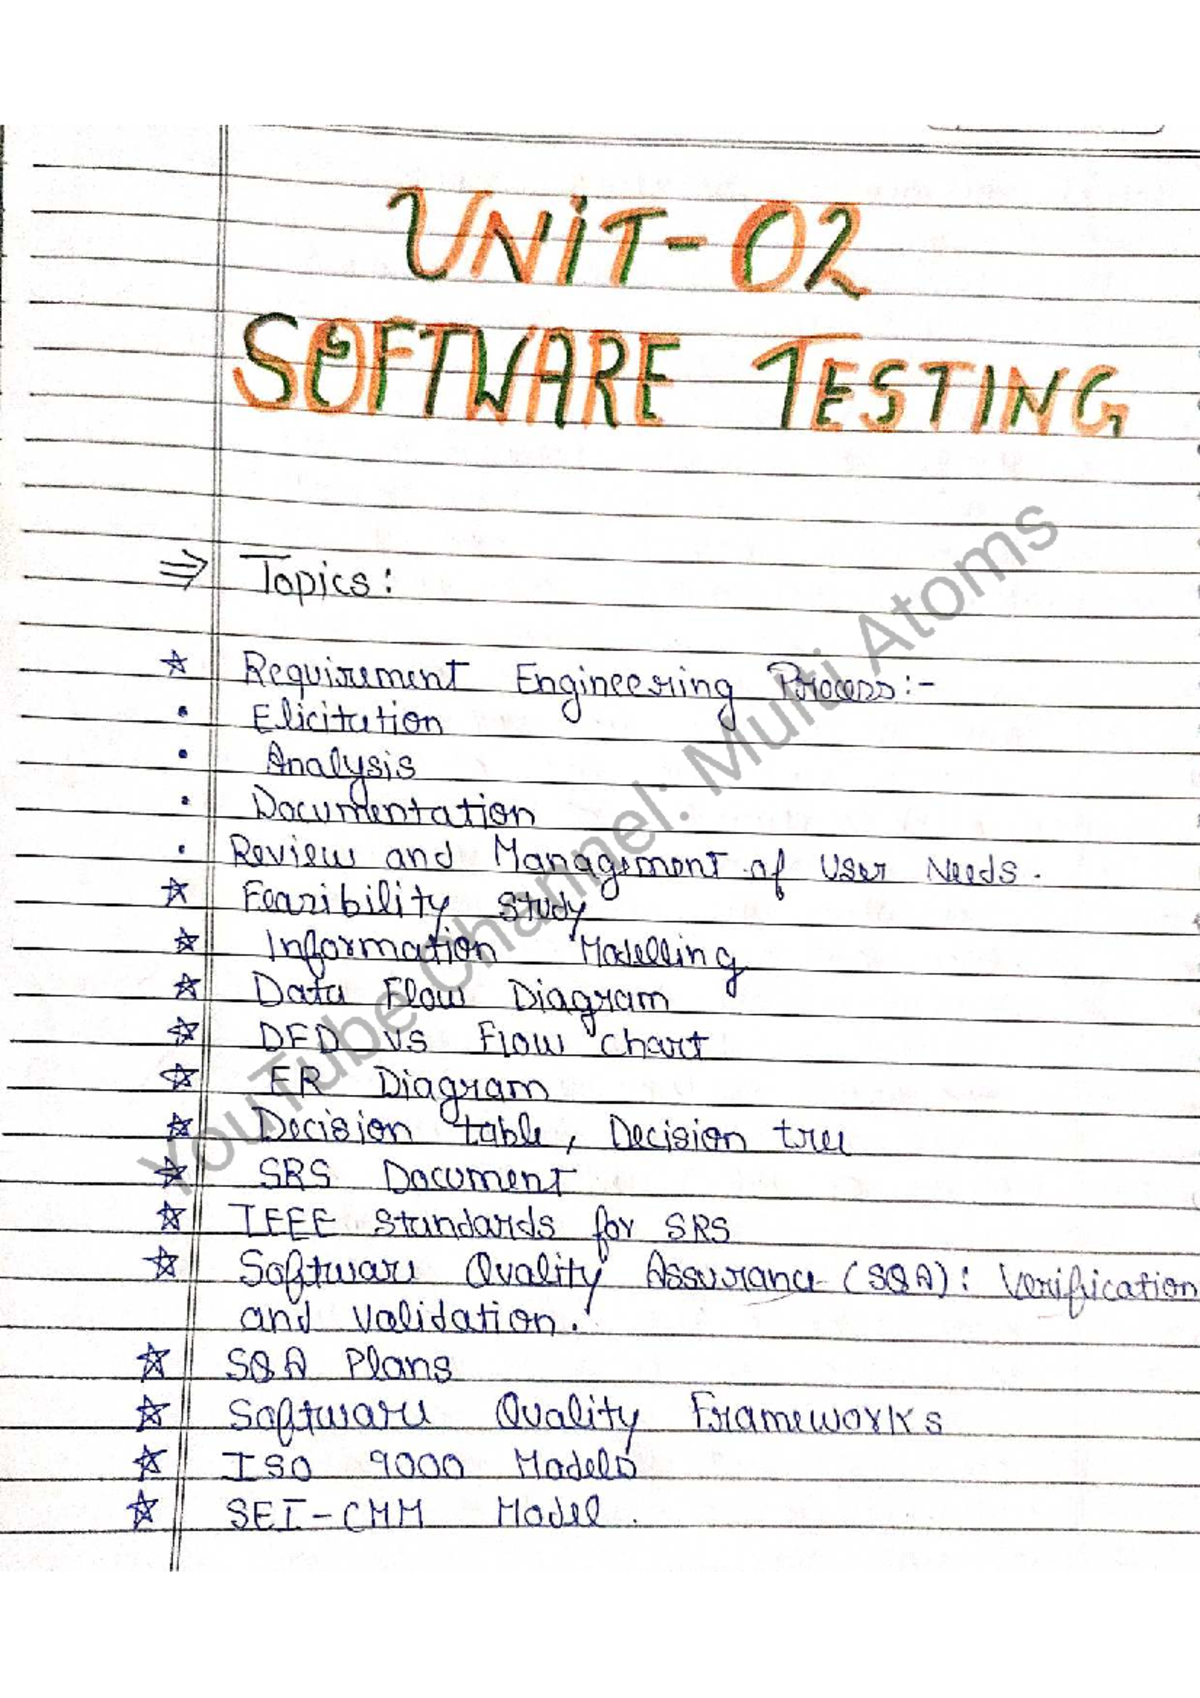 UNIT-02
SOFTWARE TESTING
⇒ Topics :
☆ Requirement Engineering Process:-
• Elicitation
• Analysis
• Documentation
• Review and Management of User Needs.
☆ Feasibility Study
☆ Information Modelling
☆ Data Flow Diagram
☆ DFD vs Flow chart
☆ ER Diagram
☆ Decision table, Decision tree
☆ SRS Document
☆ IEEE Standards for SRS
☆ Software Quality Assurance (SQA): Verification
and Validation.
☆ SQA Plans
☆ Software Quality Frameworks
☆ ISO 9000 Models
☆ SEI-CMM Model.
YouTube Channel: Multi Atoms